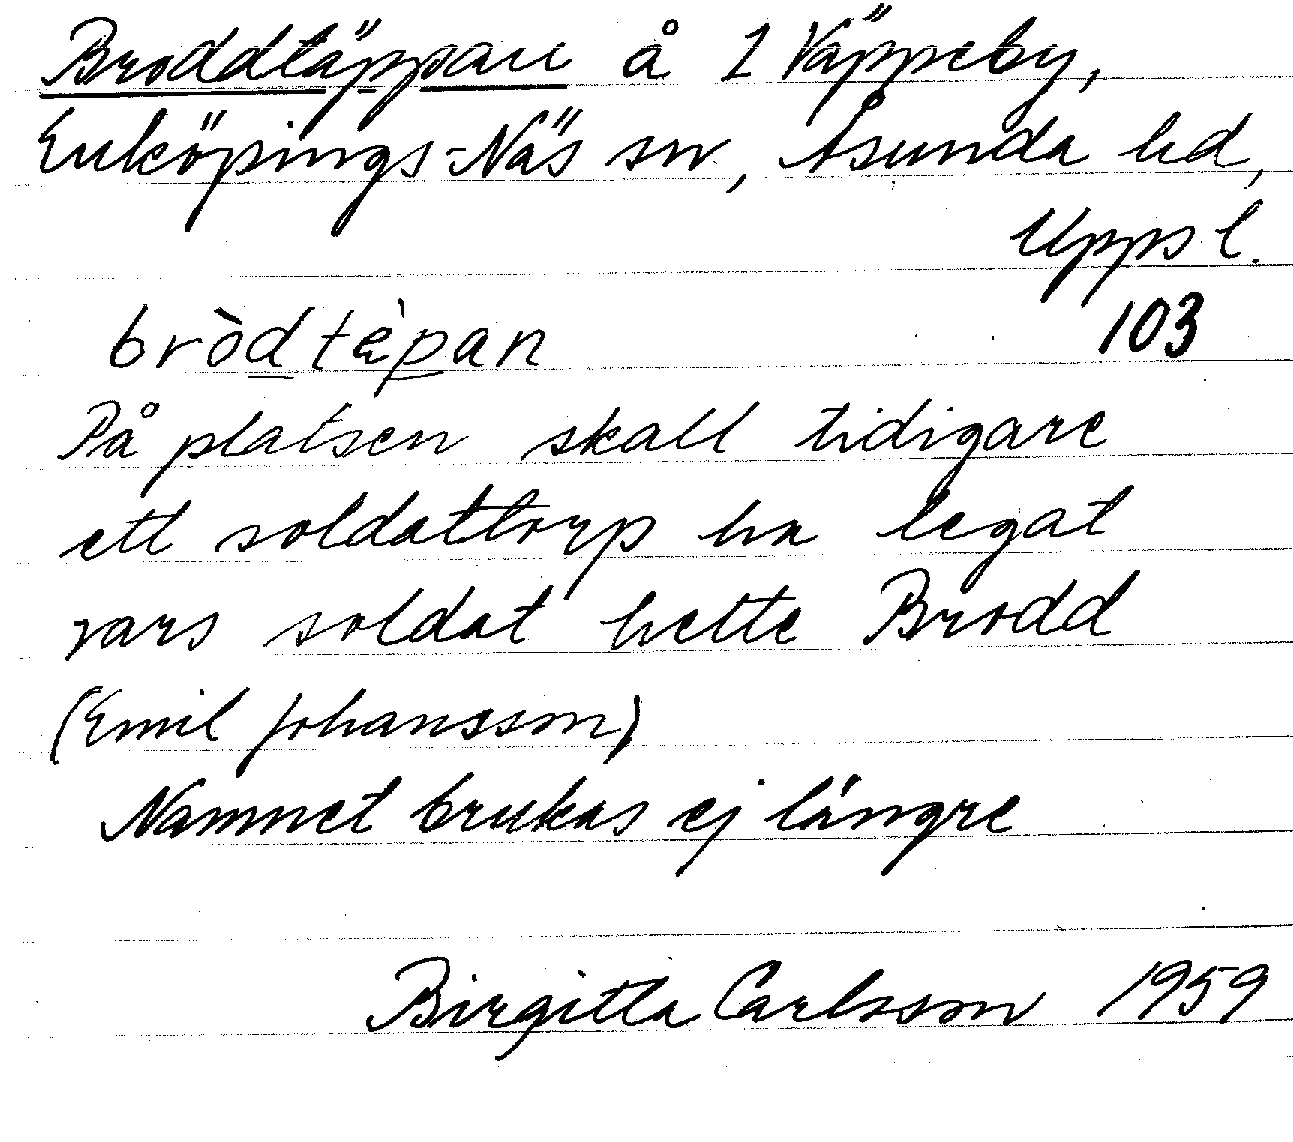 Broddtäppan å 1 Väppeby,
Enköpings-Näs sn, Åsunda hd,
Upps l.
bròdtèpan
103
På platsen skall tidigare
ett soldattorp ha legat
vars soldat hette Brodd
(Emil Johansson)
Namnet brukas ej längre
Birgitta Carlsson 1959